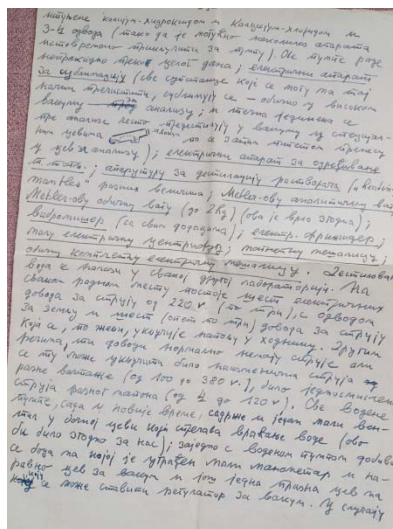 њене калцијум-хидроксидом и калцијум-хлоридом и
3-4 одвода (тако да је могуће неколико апарата
истовремено прикључити за пумпу). Ове пумпе раде
непрекидно током целог дана; електрични апарат
за сублимацију (све супстанце које се могу на тај
начин пречистити, сублимују се – обично у високом
вакууму анализу; и течна једињења се
пре анализе често предестилишу у вакууму у специјал-
ним цевима па а затим пипетом пренесу
у цев за анализу); електрични апарат за одређивање
т. топљ.; апаратуру за дестилацију растварача
mantles" разних величина; Metler-ову аналитичку вагу,
Metler-ову обичну вагу (до 2 kg) (ова је врло згодна);
вибромишер (са свим додацима); електр. фрижидер;
малу електричну центрифугу; магнетну мешалицу;
обичну електричну мешалицу. Дестилована
вода се налази у свакој другој лабораторији. На
сваком радном месту постоје шест електричних
довода за струју од 220 v. (по три), с одводом
за земљу и шест (опет по три) довода за струју
која се, по жељи, укључује напољу у ходнику. Другим
речима, ти доводи нормално немају струје али
се ту може укључити било наизменична струја
разне волтаже (од 100 до 380 v.), било једносмислена
струја разног напона (од 2 до 120 v). Све водене
пумпе, сада у новије време, садрже и један мали вен-
тил у бочној цеви који спречава враћање воде (ово
би било згодно за нас); заједно с воденом пумпом добија
се боца на којој је уграђен мали манометар и на-
равно цев за вакуум и још једна празна цев на
коју се може ставити регулатор за вакуум. У случају